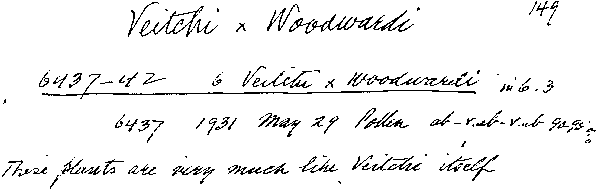 149
Veitchi x Woodwardi
6437-42 6 Veitchi x Woodwardi in 6.3
6437 1931 May 29 Pollen ab-v.ab-v.ab
These plants are very much like Veitchi itself